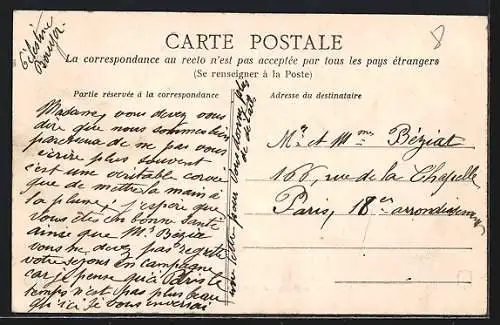 Célestine
Bouyer
CARTE POSTALE
8
La correspondance au recto n'est pas acceptée par tous les pays étrangers
(Se renseigner à la Poste)
Partie réservée à la correspondance
Adresse du destinataire
Madame, vous devez vous
dire que nous sommes bien
paresseux de ne pas vous
écrire plus souvent
c'est une véritable corvée
que de mettre la main à
la plume; j'espère que
Vous êtes en bonne santé
ainsi que Mr Bézia
vous ne devez pas regretter
votre séjour en campagne
car je pense qu'à Paris le
temps n'est pas plus beau
qu'ici Je vous enverrai
pour vous
Mr et Mme Béziat
166, rue de la Chapelle
Paris, 18e arrondissement